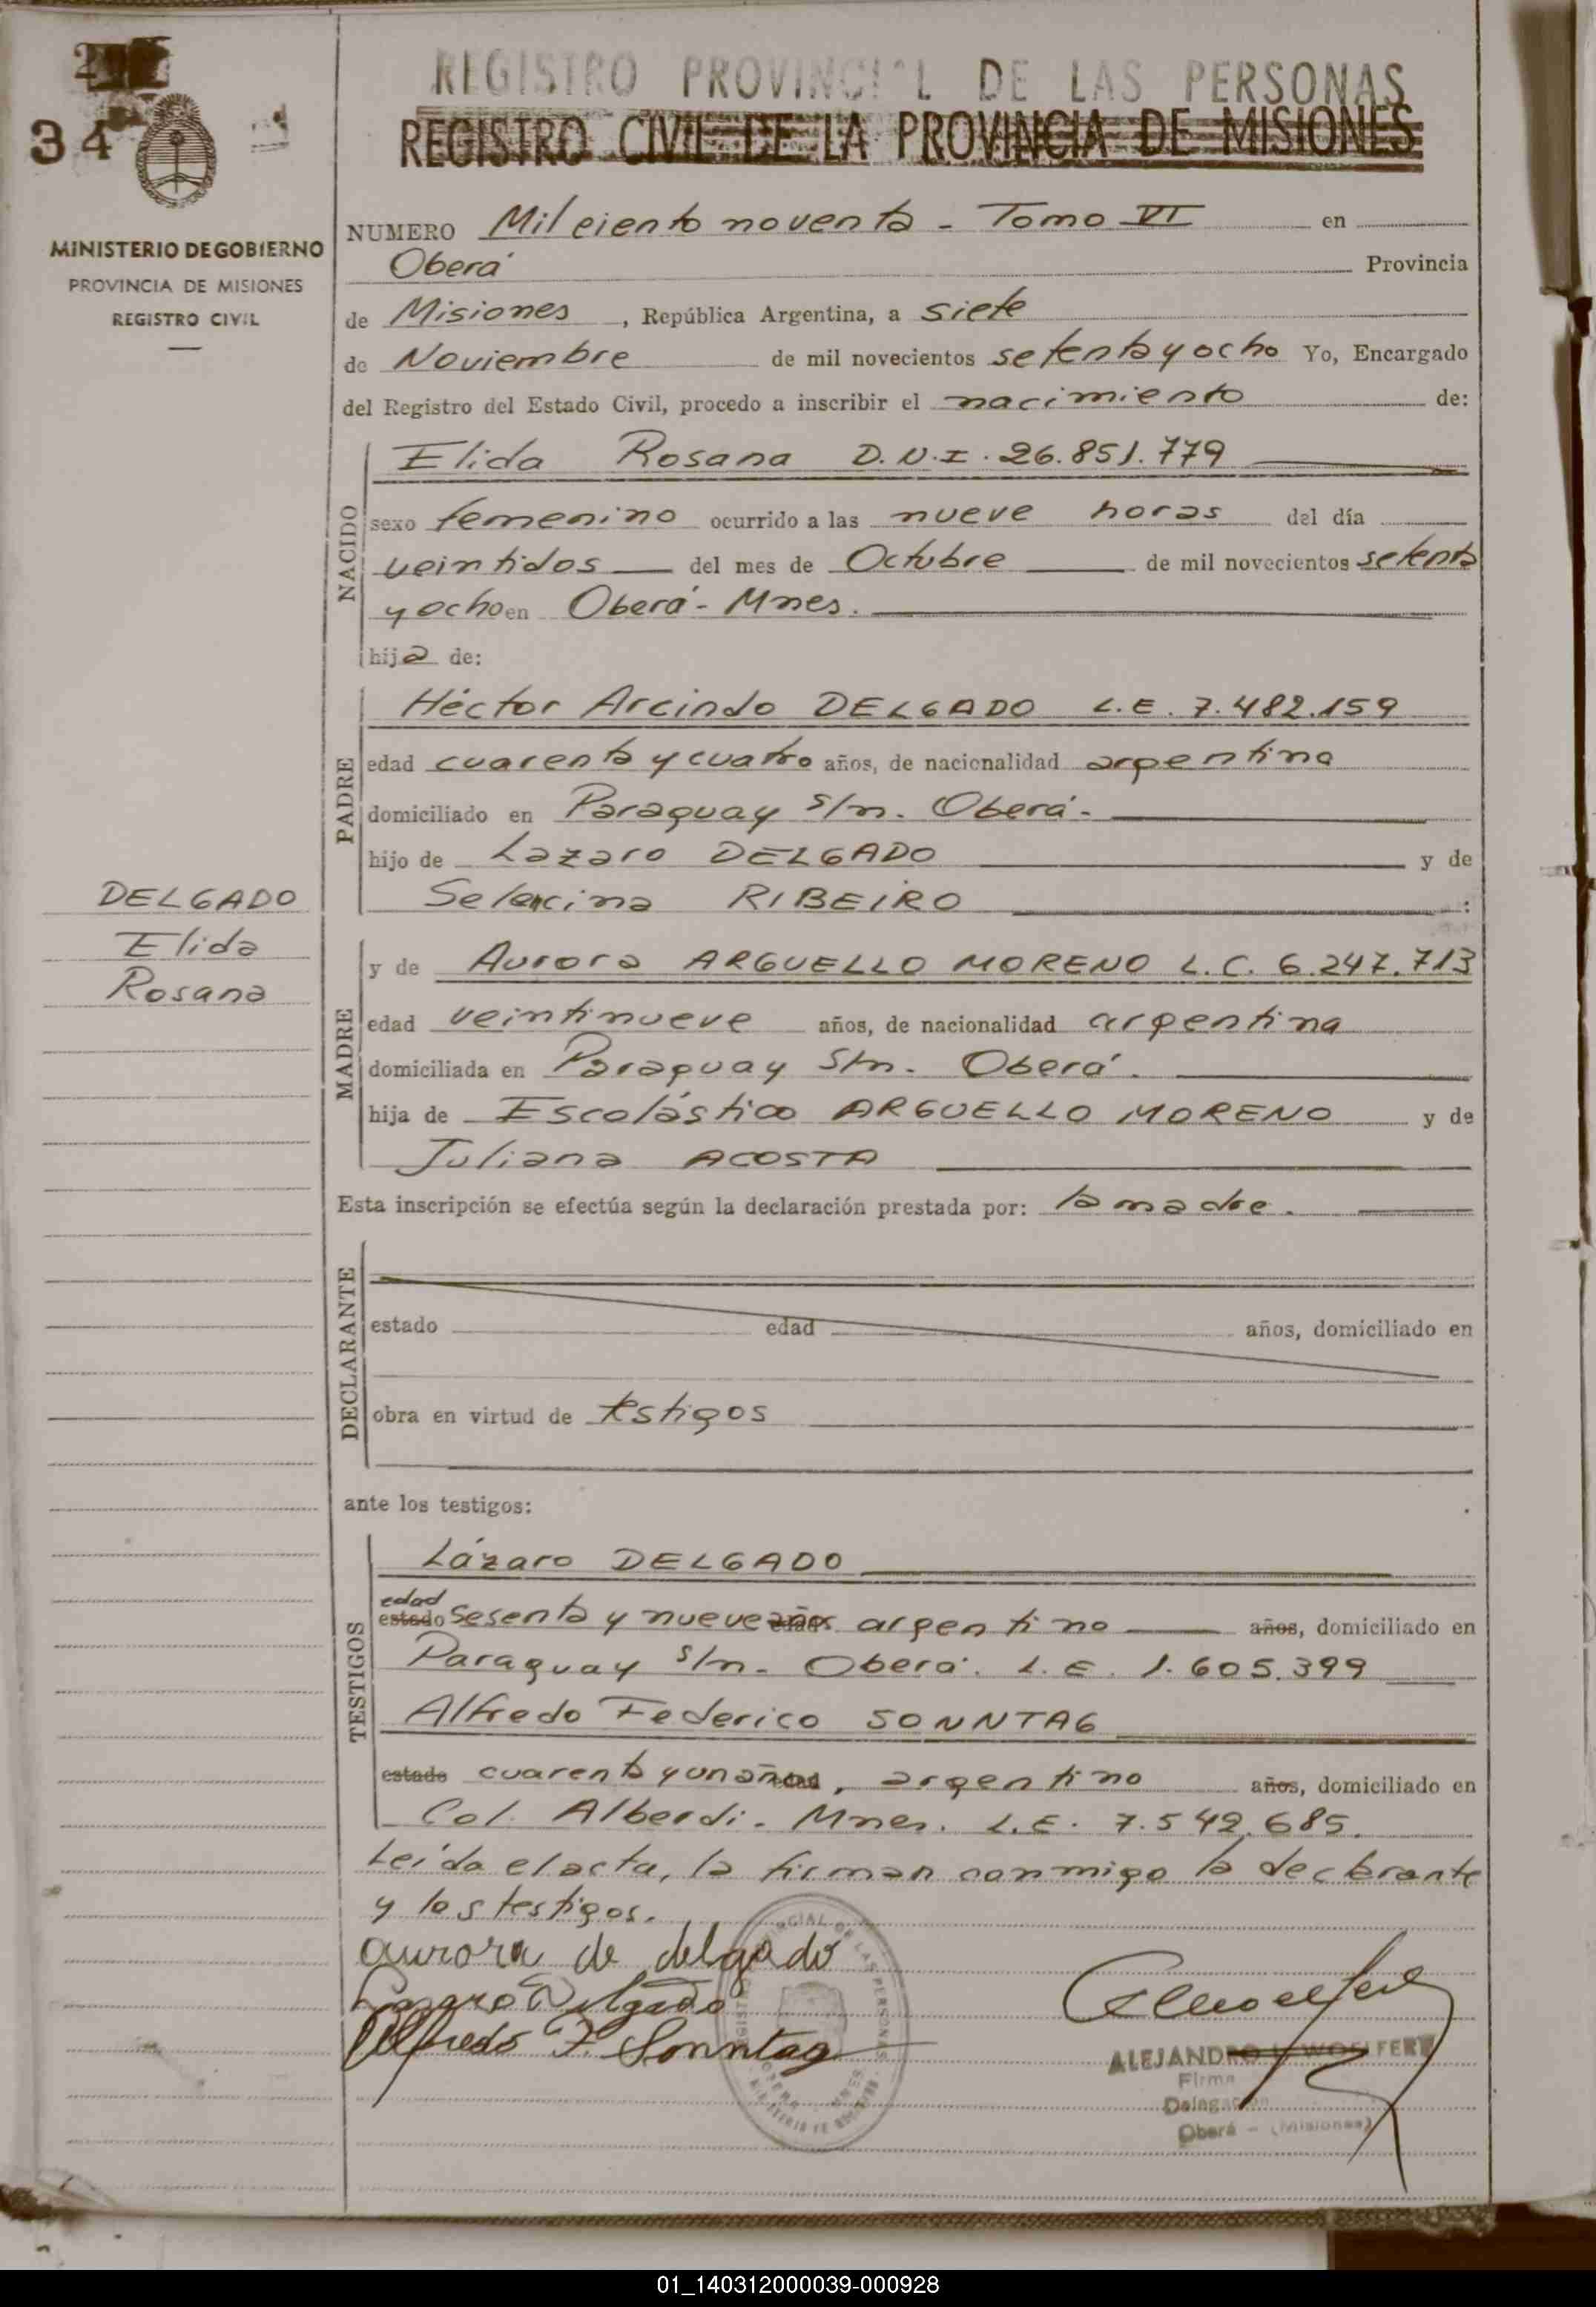 34
MINISTERIO DE GOBIERNO
PROVINCIA DE MISIONES
REGISTRO CIVIL
DELGADO
Elida
Rosana
REGISTRO PROVINCIAL DE LAS PERSONAS
REGISTRO CIVIL DE LA PROVINCIA DE MISIONES
NUMERO Mil ciento noventa - Tomo VI en
Oberá Provincia
de Misiones, República Argentina, a siete
de Noviembre de mil novecientos setenta y ocho Yo, Encargado
del Registro del Estado Civil, procedo a inscribir el nacimiento de:
NACIDO
Elida Rosana D.N.I. 26.851.779
sexo femenino ocurrido a las nueve horas del día
veintidos del mes de Octubre de mil novecientos setenta
y ocho en Oberá - Mnes.
hija de:
PADRE
Héctor Arcindo DELGADO L.E. 7.482.159
edad cuarenta y cuatro años, de nacionalidad argentina
domiciliado en Paraguay s/n. Oberá.
hijo de Lazaro DELGADO y de
RIBEIRO :
MADRE
y de Aurora ARGUELLO MORENO L.C. 6.247.713
edad veintinueve años, de nacionalidad argentina
domiciliada en Paraguay s/n. Oberá.
hija de Escolástico ARGUELLO MORENO y de
Juliana ACOSTA
Esta inscripción se efectúa según la declaración prestada por: la madre.
DECLARANTE
estado edad años, domiciliado en
obra en virtud de testigos
ante los testigos:
TESTIGOS
Lázaro DELGADO
edad
estado sesenta y nueve años argentino años, domiciliado en
Paraguay s/n. Oberá. L.E. 1.605.399
Alfredo Federico SONNTAG
estado cuarenta y un años, argentino años, domiciliado en
Col. Alberdi. Mnes. L.E. 7.542.685.
Leída el acta, la firman conmigo la declarante
y los testigos.
Aurora de delgado
Lazaro Delgado
Alfredo F. Sonntag
ALEJANDRO WOELFERT
Firma
Delegación
Oberá - (Misiones)
01_140312000039-000928